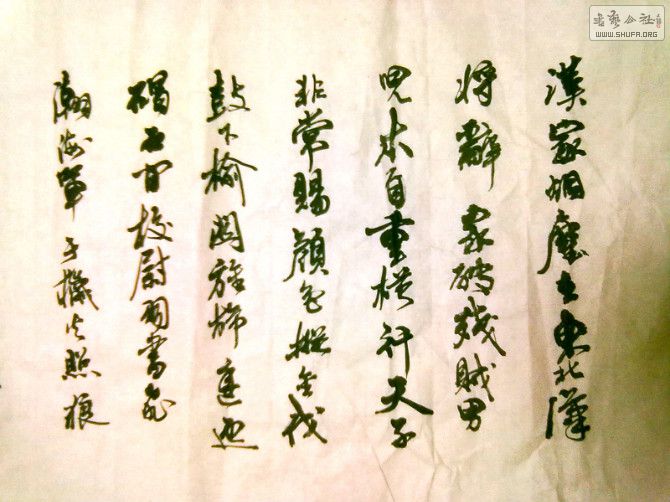 漢家烟塵在東北漢
将辭家破殘賊男
兒本自重橫行天子
非常賜顏色摐金伐
鼓下榆關旌旆逶迤
碣石間校尉羽書飛
瀚海單于獵火照狼
書藝公社
WWW.SHUFA.ORG